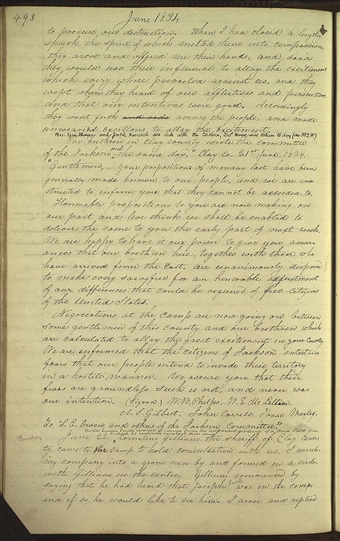 498
June 1834
to procure our destruction. When I had closed a lengthy
speech, the spirit of which melted them into compassion,
they arose and offered me their hands, and said
they would use their influence to allay the excitement
which every where prevailed against us, and they
wept when they heard of our afflictions and persecutions,
and that our intentions were good. Accordingly
they went forth among the people, and made
unwearied exertions to allay the excitement.
The brethren in Clay county wrote the committee
of the Jackson, the same day, Clay Co. 21st June, 1834.
Gentlemen, your propositions of monday last have been
generally made known to our people, and we are in-
structed to inform you that they can not be acceded to.
Honorable propositions to you are now making on
our part and we think we shall be enabled to
deliver the same to you the early part of next week.
We are happy to have it our power to give you assur-
ances that our brethren here, together with those who
have arrived from the East, are unanimously disposed
to make every sacrifice for an honorable adjustment
of our differences that could be required of free citizens
of the United States.
Negociations at the camp are now going on between
some gentlemen of this county and our brethren which
are calculated to allay the great excitement in your county.
We are informed that the citizens of Jackson entertain
fears that our people intend to invade their territory
in a hostile manner. We assure you that their
fears are groundless, such is not, and never was
our intention. (Signed) W. W. Phelps, W. E. McLellin.
A. S. Gilbert, John Corrill, Isaac Morley.
To S. C. Owens and others of the Jackson Committee.
June 22. Cornelius Gillium the sheriff of Clay county
came to camp to hold consultation with us. I march
my company into a grove near by and formed in a circle
with Gillium in the centre. Gillium commenced by
saying that he had heard that Joseph was in the camp
and if so he would like to see him. I arose and replied